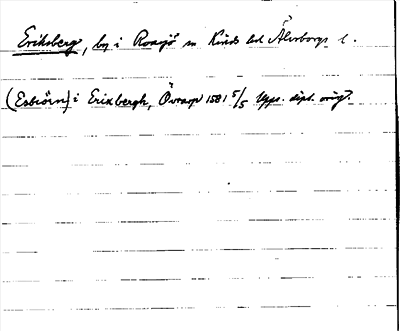 Eriksberg, by i Roasjö sn Kinds hd Älvsborgs l.
(Esbiörn) i Erixbergh, Övraryd 1581 5/5 Upps. dipl. orig.